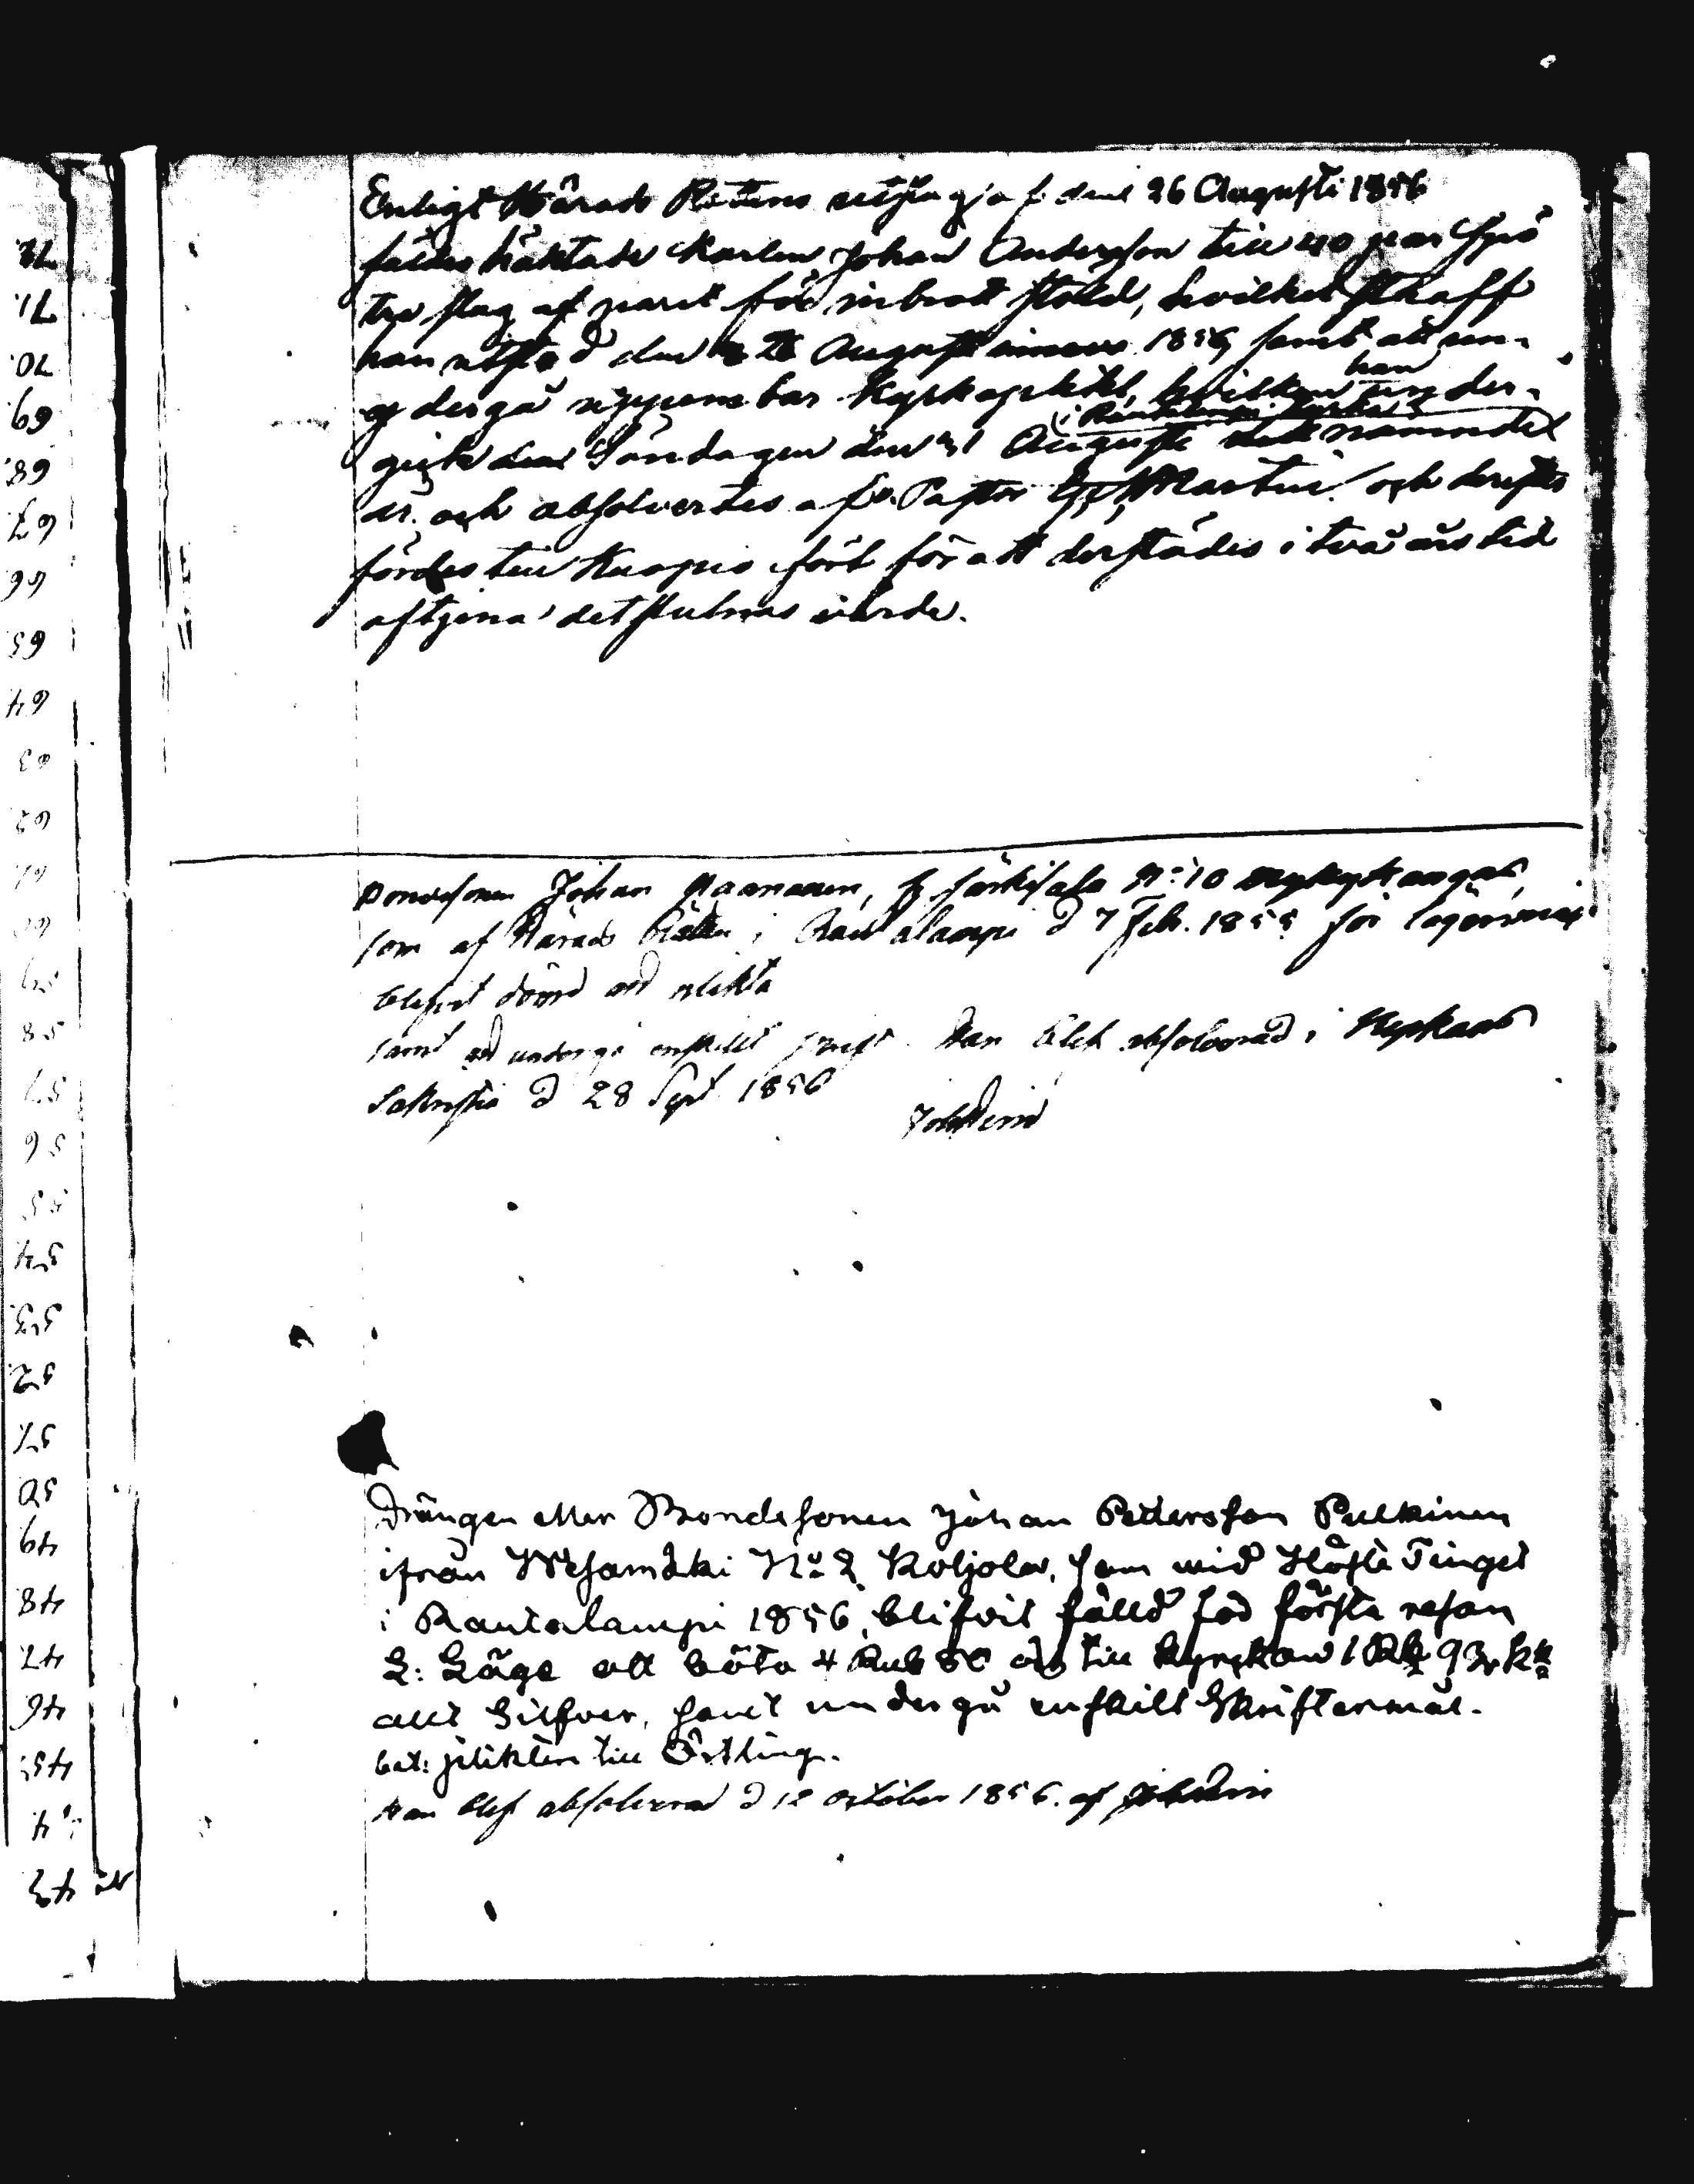 Enligt Härads Rättens utslag af den 26 Augusti 1856
fäldes häktade Karlen Johan Andersson till 40 par spö
tre slag af paret för inbrott stöld, hvilket straff
han utstod den 28 Augusti 1856 samt att un-
dergå uppenbar Kyrkoplikt, hvilken han under-
gick den Söndagen den 31 Augusti nämndel
år. och absolverdes af v. Pastor Martin och derefter
fördes till Kuopio fört för att derstädes i två års tid
aftjena det stulnas värde.
Bondesonen Johan Maananen, fr Särkisalo N:o 10
som af Härads Rätten i Rautalampi d 7 Feb. 1855 för lägersmåhl
blifvit dömd att plikta
samt att undergå enskilt skrift. Han blef absolverad i Kyrkans
Sakristia d 28 Sept 1856
Drängen eller Bondesonen Johan Petersson Pulkinen
ifrån Wesamäki No 2 Koljola, som wid Höste Tinget
i Rautalampi 1856, blifvit fälld föd första resan
L: Läge att böta 4 Rub 80 och till kyrckan 1 Rb 93 k
allt Silfver, samt undergå enskilt Skriftermål.
bet: plikten till Östling.
Han blef absolverad d 12 october 1856. af
72.
71.
70.
69
68.
67
66
65
64
63
62
61
60
59
58
57
56
55
54
53.
52.
51
50
49
48
47
46
45.
44
43